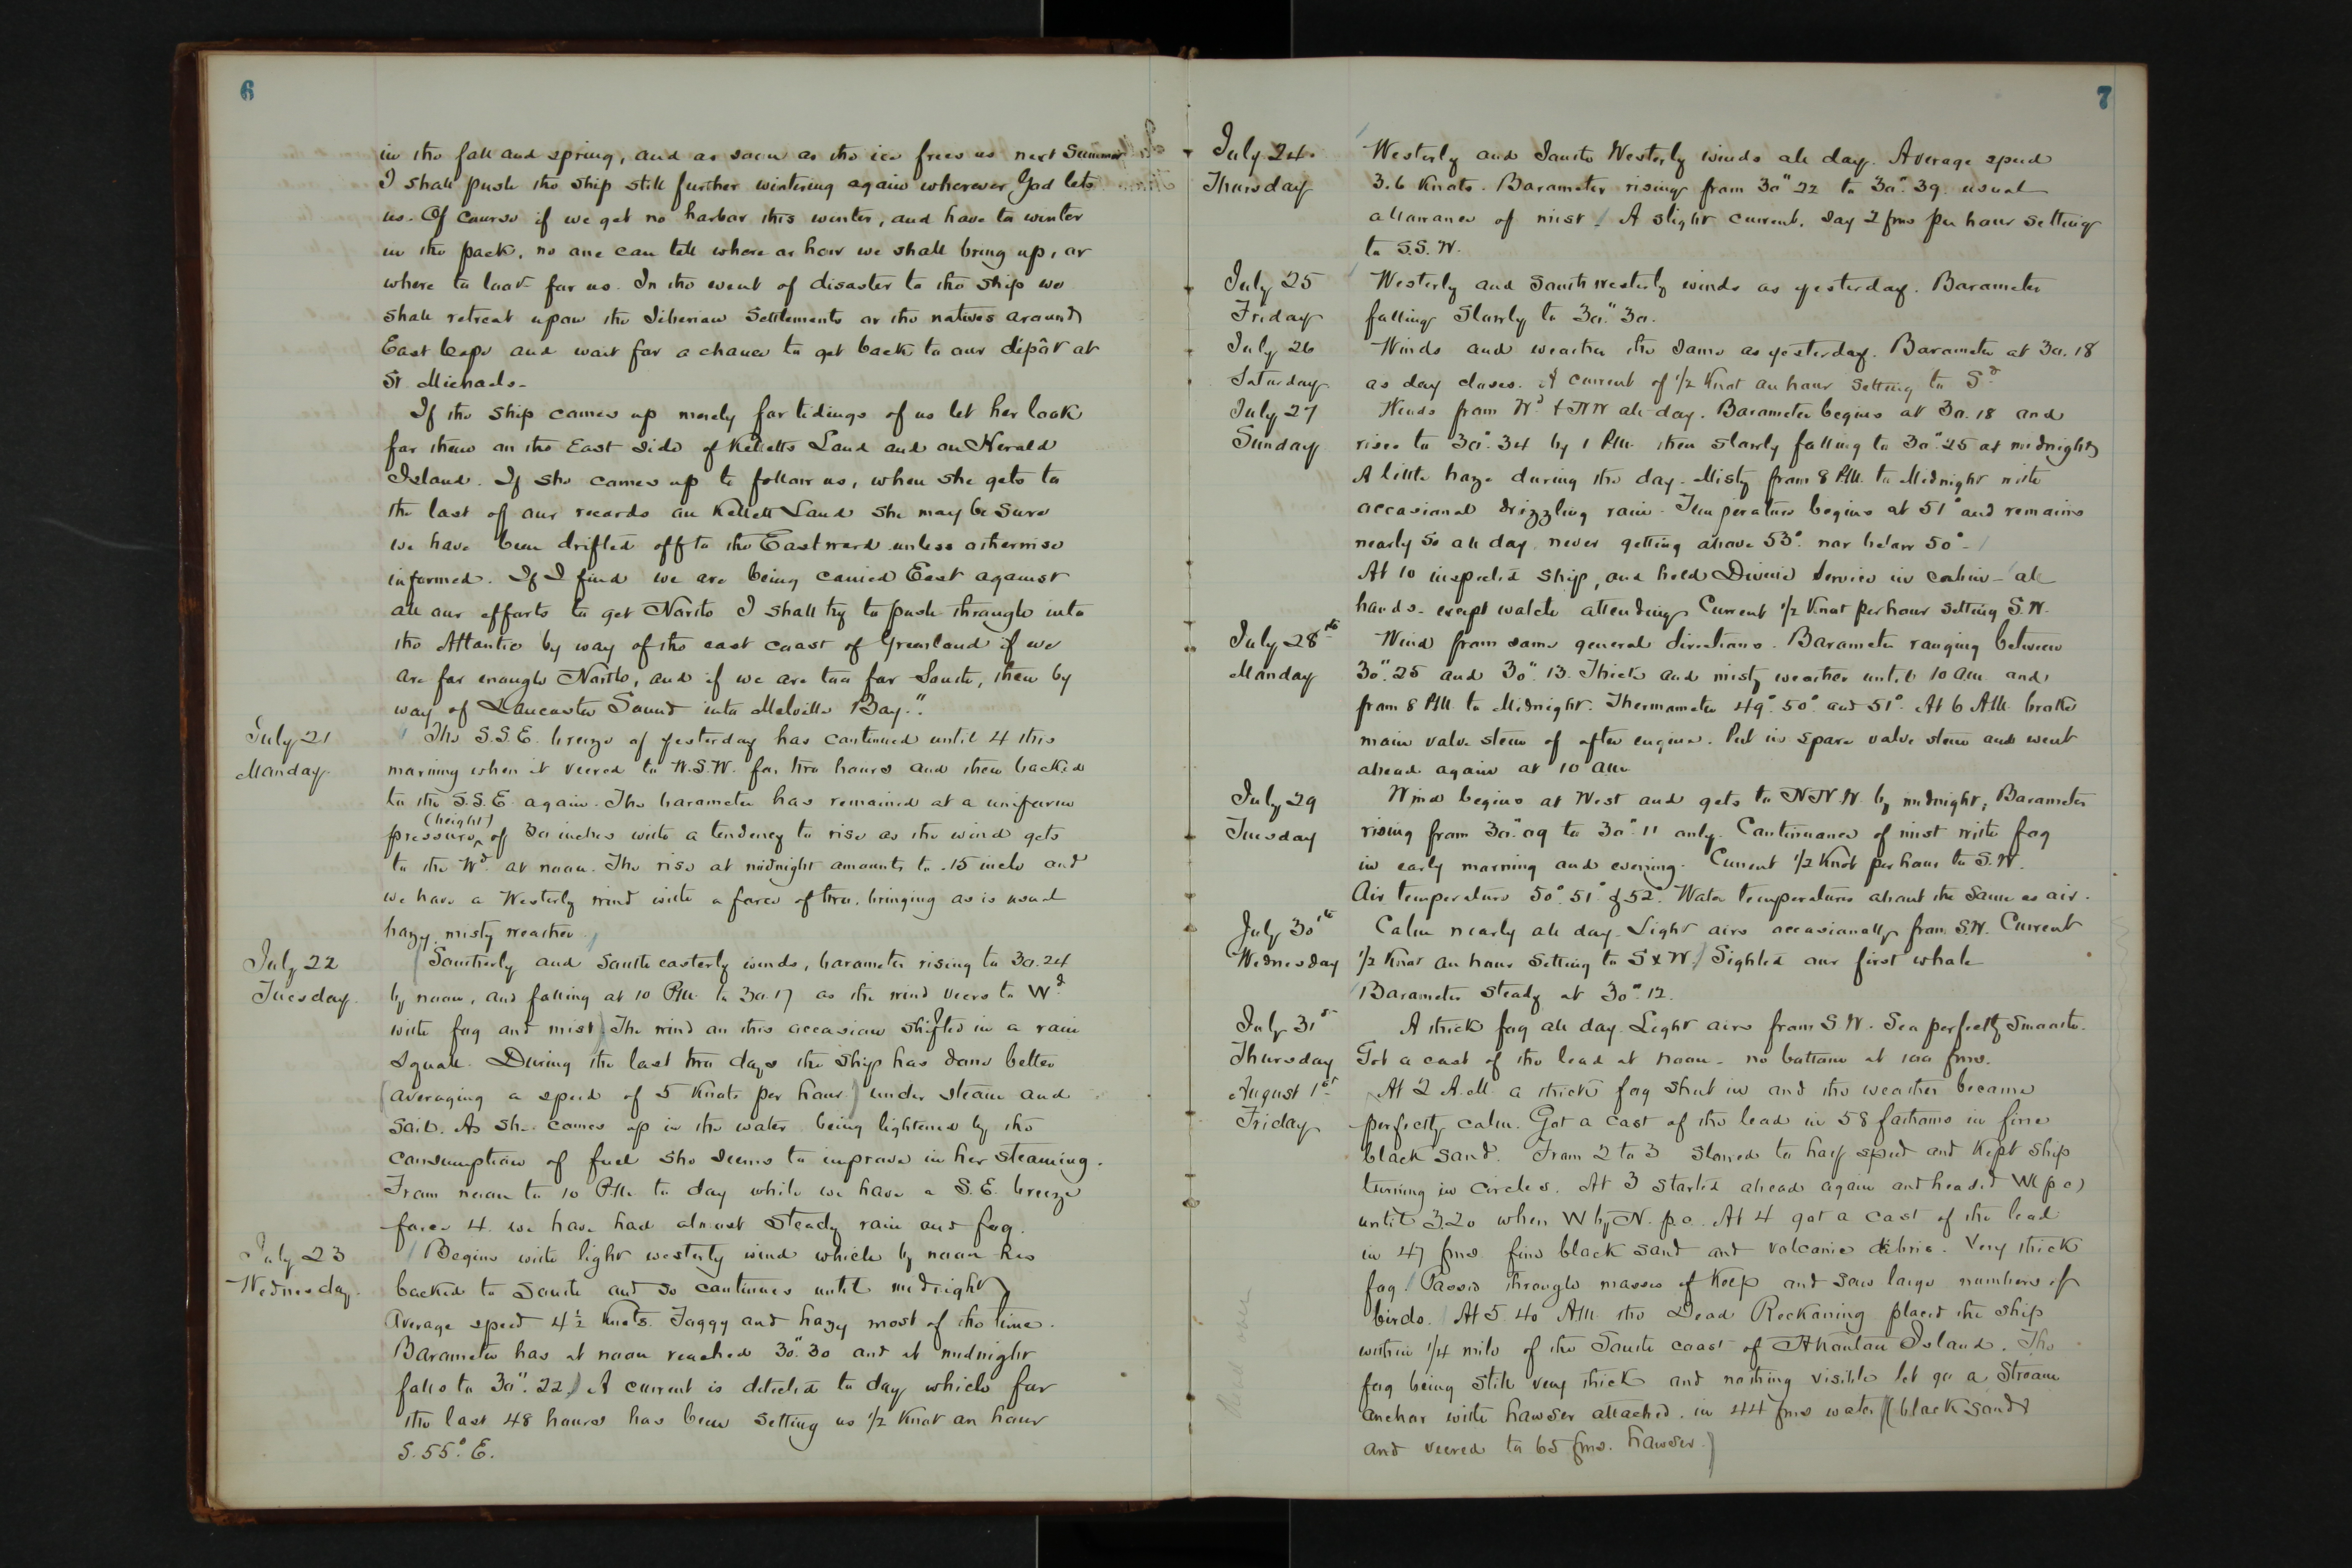 6
in the fall and spring, and as soon as the ice frees us next Summer
I shall push the ship still further wintering again wherever God lets
us. Of course if we get no harbor this winter, and have to winter
in the pack, no one can tell where or how we shall bring up, or
where to look for us. In the event of disaster to the ship we
shall retreat upon the Siberian Settlements or the natives around
East Cape and wait for a chance to get back to our depôt at
St. Michaels.
If the ship comes up merely for tidings of us let her look
for them on the East side of Kelletts Land and on Herald
Island. If she comes up to follow us, when she gets to
the last of our records on Kellett Land she may be sure
we have been drifted off to the Eastward unless otherwise
informed. If I find we are being carried East against
all our efforts to get North I shall try to push through into
the Atlantic by way of the east coast of Greenland if we
are far enough North, and if we are too far South, then by
way of Lancaster Sound into Melville Bay."
July 21
Monday.
The S.S.E. breeze of yesterday has continued until 4 this
morning when it veered to W.S.W. for two hours and then backed
to the S.S.E. again. The barometer has remained at a uniform
(height)
pressure ^ of 30 inches with a tendency to rise as the wind gets
to the Wd. at noon. The rise at midnight amounts to .15 inch and
we have a Westerly wind with a force of two, bringing as is usual
hazy misty weather
July 22
Tuesday.
Southerly and South easterly winds, barometer rising to 30.24
by noon, and falling at 10 P.M. to 30.17 as the wind veers to Wd
with fog and mist. The wind on this occasion shifted in a rain
squall. During the last two days the ship has done better
(averaging a speed of 5 Knots per hour) under steam and
sail. As she comes up in the water being lightened by the
consumption of fuel she seems to improve in her steaming.
From noon to 10 P.M. to day while we have a S.E. breeze
force 4. we have had almost steady rain and fog.
July 23
Wednesday.
Begins with light westerly wind which by noon has
backed to South and so continues until midnight
Average speed 4½ Knots. Foggy and hazy most of the time.
Barometer has at noon reached 30".30 and at midnight
falls to 30". 22) A current is detected to day which for
the last 48 hours has been setting us 1/2 Knot an hour
S. 55° E.
7
July 24.
Thursday
Westerly and South Westerly winds all day. Average speed
3.6 Knots. Barometer rising from 30" 22 to 30". 39. usual
allowance of mist. A slight current, say 2 fms per hour setting
to S.S.W.
July 25
Friday
Westerly and South westerly winds as yesterday. Barometer
falling Slowly to 30." 30.
July 26
Saturday
Winds and weather the same as yesterday. Barometer at 30.18
as day closes. A current of 1/2 Knot an hour setting to Sd
July 27
Sunday
Winds from Wd & NW all day. Barometer begins at 30.18 and
rises to 30". 34 by 1 P.M. then slowly falling to 30".25 at midnight
A little haze during the day. Misty from 8 P.M. to Midnight with
occasional drizzling rain. Temperature begins at 51° and remains
nearly so all day, never getting above 53° nor below 50°.
At 10 inspected ship, and held Divine Service in cabin - all
hands except watch attending. Current 1/2 Knot per hour setting S.W.
July 28th
Monday
Wind from same general directions. Barometer ranging between
30".25 and 30". 13. Thick and misty weather until 10 a.m. and
from 8 P.M. to Midnight. Thermometer 49°. 50°. and 51°. At 6 A.M. broke
main valve stem of after engine. Put in spare valve stem and went
ahead again at 10 a.m.
July 29
Tuesday
Wind begins at West and gets to NNW. by midnight; Barometer
rising from 30".09 to 30".11 only. Continuance of mist with fog
in early morning and evening. Current 1/2 Knot per hour to S.W.
Air temperature 50°. 51° & 52°. Water temperature about the same as air.
July 30th
Wednesday
Calm nearly all day. Light airs occasionally from S.W. Current
1/2 Knot an hour setting to S x W.) Sighted our first whale
Barometer steady at 30". 12.
July 31st
Thursday
A thick fog all day. Light airs from S.W. Sea perfectly smooth.
Got a cast of the lead at noon - no bottom at 100 fms.
August 1st
Friday
At 2 A.M. a thick fog shut in and the weather became
perfectly calm. Got a cast of the lead in 58 fathoms in fine
black sand. From 2 to 3 slowed to half speed and Kept ship
turning in circles. At 3 started ahead again and headed W (p c)
until 3.20 when W by N. p.c. At 4 got a cast of the lead
in 47 fms. fine black sand and volcanic débris. Very thick
fog. Passed through masses of Kelp and saw large numbers of
birds. At 5. 40 A.M. the Dead Reckoning placed the ship
within 1/4 mile of the South coast of Akoutan Island. The
fog being still very thick and nothing visible let go a Stream
anchor with hawser attached. in 44 fms water (black sand)
and veered to 65 fms. hawser.)